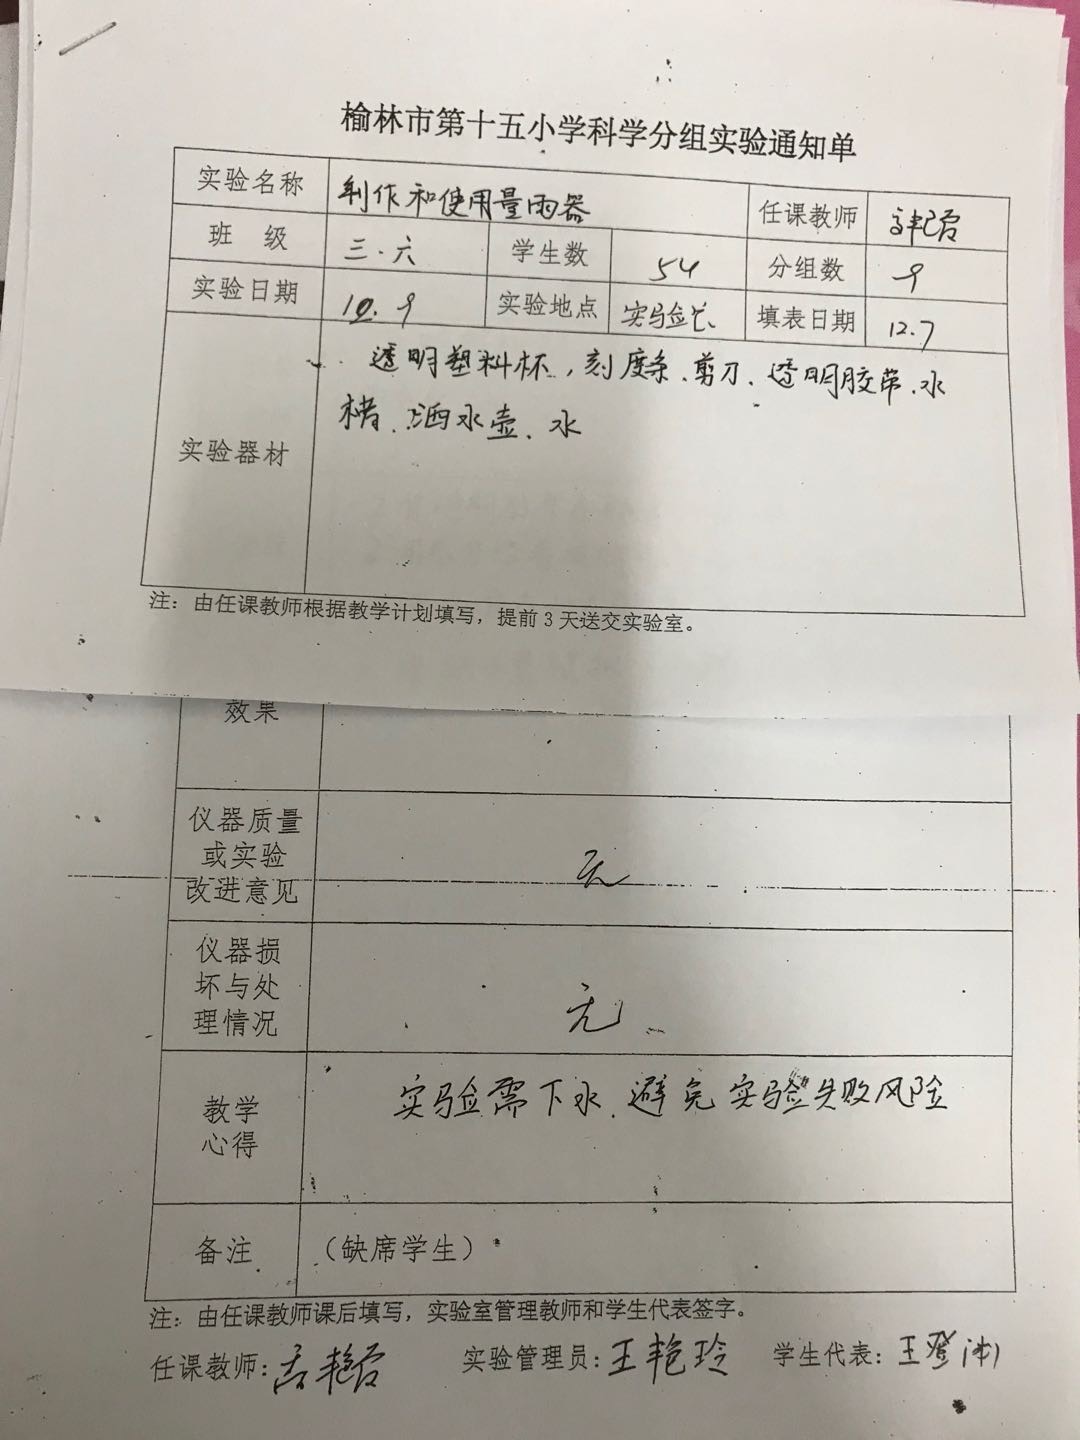 榆林市第十五小学科学分组实验通知单
实验名称 制作和使用量雨器 任课教师
班 级 三.六 学生数 54 分组数 9
实验日期 10.9 实验地点 实验室 填表日期 12.7
透明塑料杯,刻度条、剪刀、透明胶带、水
实验器材 槽、洒水壶、水
注：由任课教师根据教学计划填写，提前3天送交实验室。
效果
仪器质量
或实验 无
改进意见
仪器损
坏与处 无
理情况
实验需下水、避免实验失败风险
教学
心得
备注 （缺席学生）
注：由任课教师课后填写，实验室管理教师和学生代表签字。
任课教师: 实验管理员: 王艳玲 学生代表: 王登